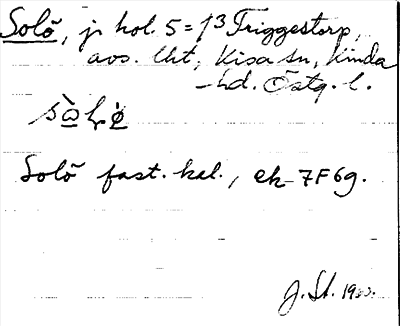 Solö, jr hol. 5=1³ Triggestorp,
avs. lht, Kisa sn, Kinda
hd. Östg. l.
Solö fast. kal., ek 7F6g.
J. St. 19